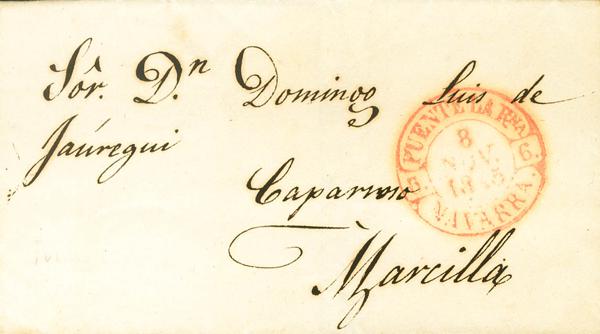 Sôr. D.n Domingo Luis de
Jaúregui
Caparroso
à
Marcilla
PUENTE LA RNA
8
NOV.
6
NAVARRA